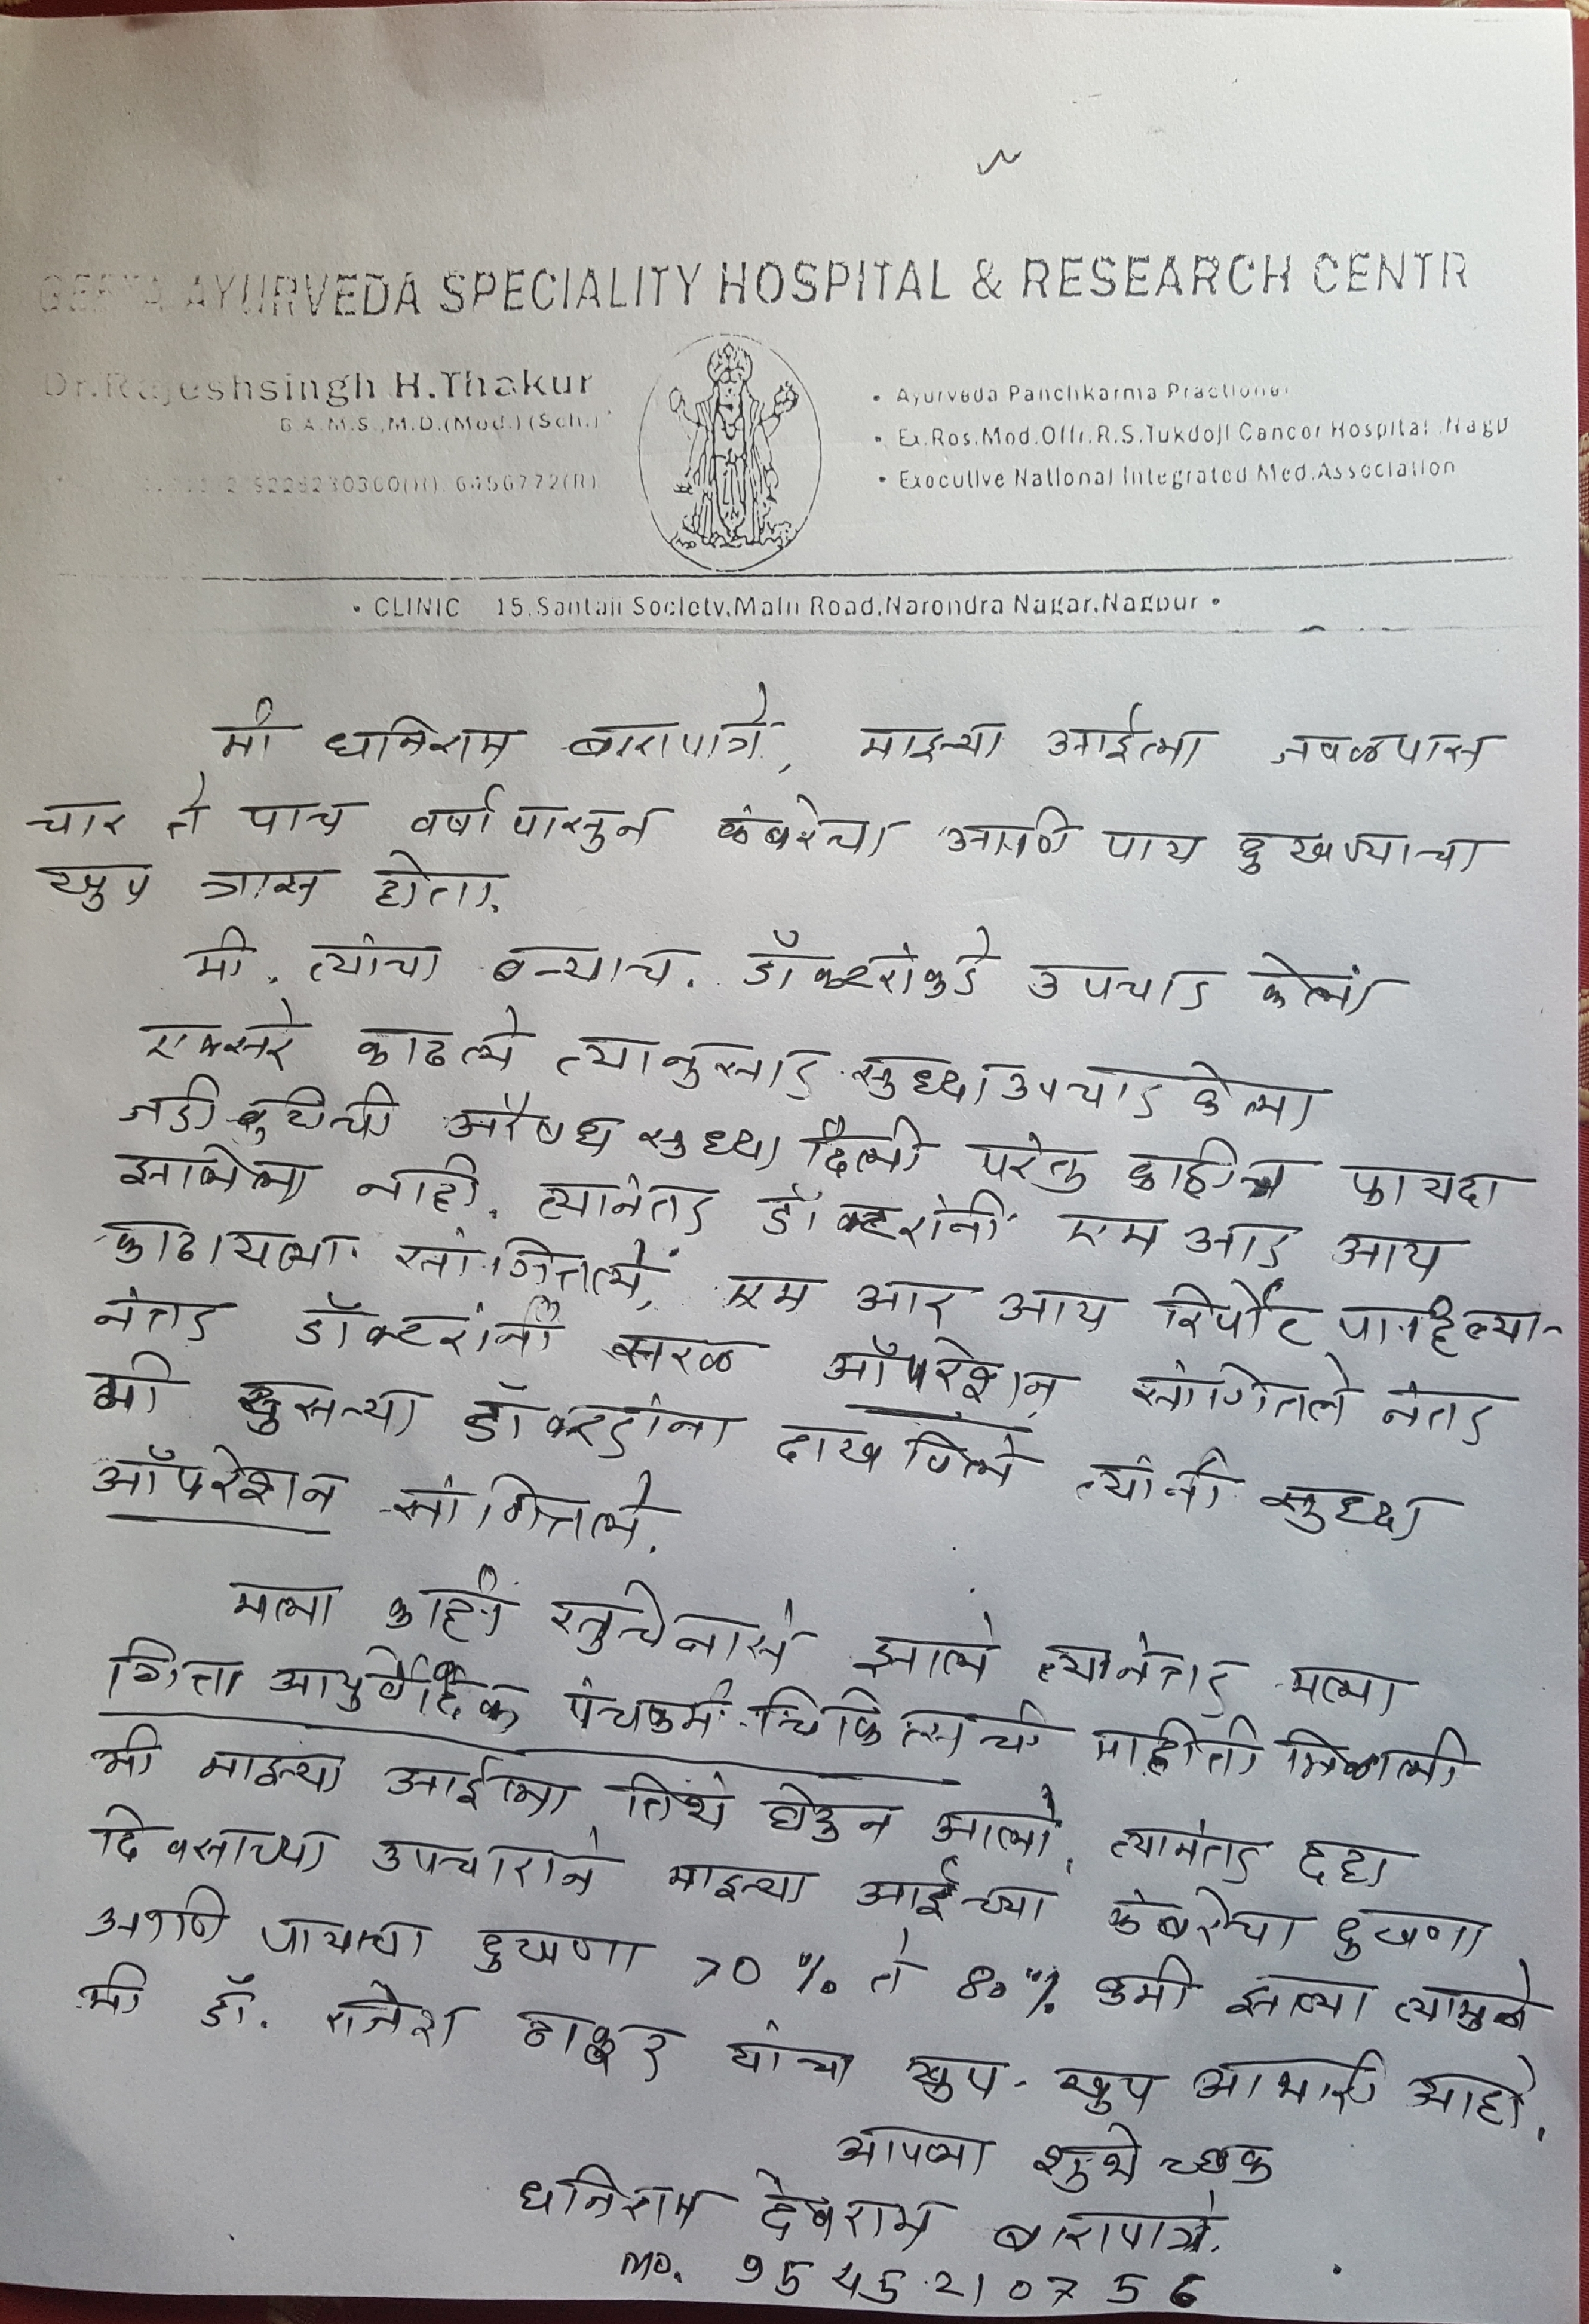 GEETA AYURVEDA SPECIALITY HOSPITAL & RESEARCH CENTR
Dr.Rajeshsingh H.Thakur
B.A.M.S.,M.D.(Med.)(Sch.)
9226230300(H), 6456772(R)
• Ayurveda Panchkarma Practioner
• Ex.Res.Med.Offr.R.S.Tukdoji Cancer Hospital ,Nagp
• Executive National Integrated Med.Association
• CLINIC 15,Santaji Society,Main Road,Narendra Nagar,Nagpur •
मी धनिराम बारापात्रे, माझ्या आईला जवळपास
चार ते पाच वर्षापासुन कंबरेचा आणि पाय दुखण्याचा
खुप त्रास होता.
मी. त्यांचा बऱ्याच. डॉक्टरांकडे उपचार केला
एक्सरे काढले त्यानुसार सुध्दा उपचार केला
जडी बुटीची औषध सुध्दा दिली परंतु काहीच फायदा
झालेला नाही. त्यानंतर डॉक्टरांनी एम आर आय
काढायला सांगितले, एम आर आय रिर्पोट पाहिल्या-
नंतर डॉक्टरांनी सरळ ऑपरेशन सांगितले नंतर
मी दुसऱ्या डॉक्टरांना दाखविले त्यांनी सुध्दा
ऑपरेशन सांगितले.
मला काही सुचेनासे झाले त्यानंतर मला
गिता आयुर्वेदिक पंचकर्म चिकित्सची माहीती मिळाली
मी माझ्या आईला तिथे घेउन आलो, त्यानंतर दहा
दिवसाच्या उपचाराने माझ्या आईच्या कंबरेचा दुखणा
आणि पायाचा दुखणा 70 % ते 80 % कमी झाल्या त्यामुळे
मी डॉ. राजेश ठाकुर यांचा खुप-खुप आभारी आहो.
आपला शुभेच्छुक
धनिराम देवराम बारापात्रे.
mo. 9545210756